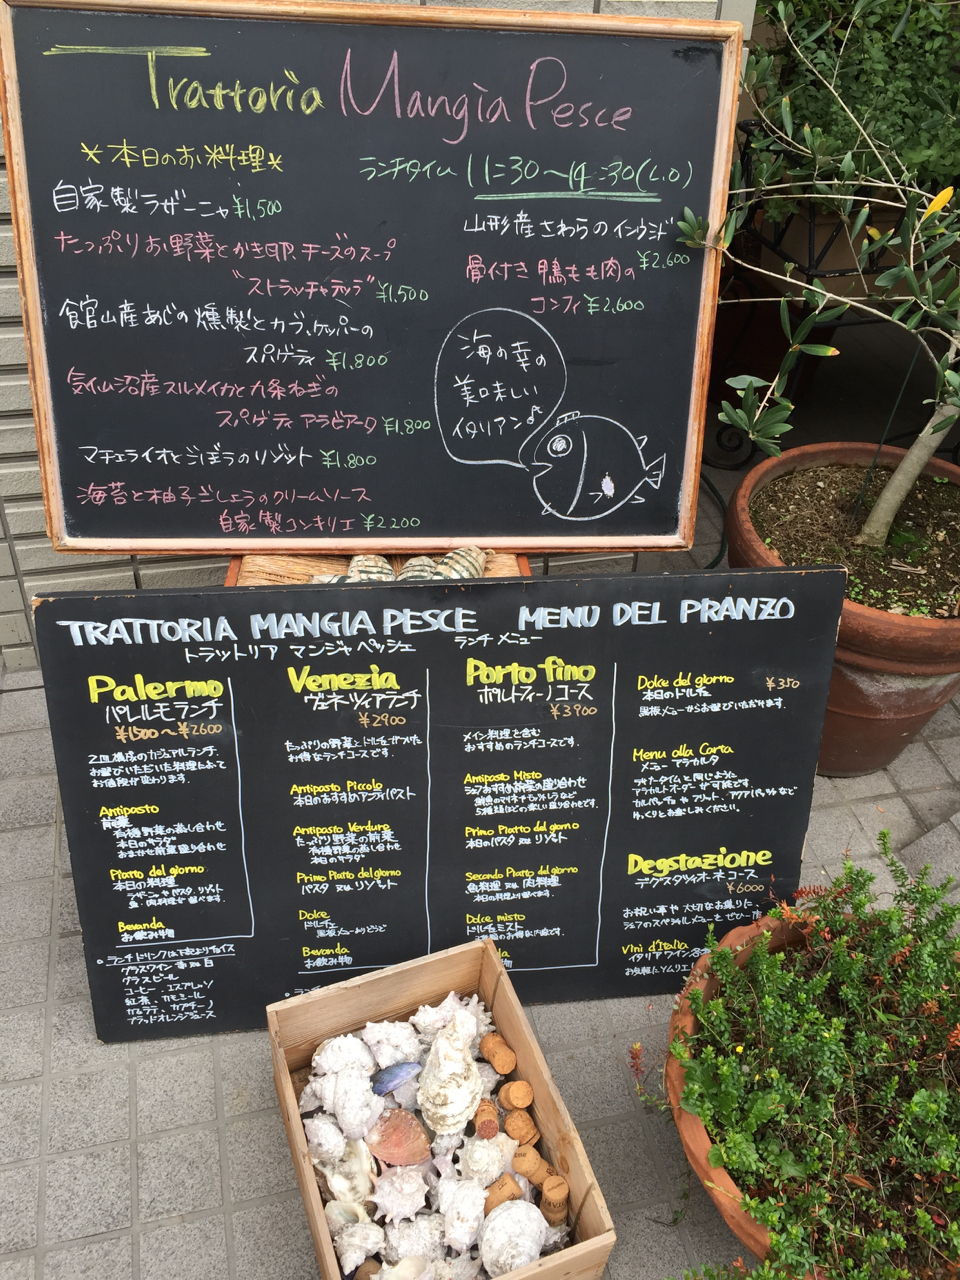 Trattoria Mangia Pesce
*本日のお料理*
ランチタイム 11:30〜14:30(L.O)
自家製ラザーニャ ¥1,500
たっぷりお野菜とかき卵、チーズのスープ
"ストラッチャテッラ" ¥1,500
館山産あじの燻製とカブ、ケッパーの
スパゲティ ¥1,800
気仙沼産スルメイカと九条ねぎの
スパゲティ アラビアータ ¥1,800
マチェライオとごぼうのリゾット ¥1,800
海苔と柚子ごしょうのクリームソース
自家製コンキリエ ¥2200
山形産さわらのインウミド
¥2,600
骨付き鴨もも肉の
コンフィ ¥2,600
海の幸の
美味しい
イタリアン♪
TRATTORIA MANGIA PESCE MENU DEL PRANZO
トラットリア マンジャ ペッシェ ランチ メニュー
Palermo
パレルモランチ
¥1500〜¥2600
2皿構成のカジュアルランチ。
お選びいただいた料理によって
お値段が変わります。
Antipasto
前菜
有機野菜の蒸し合わせ
本日のサラダ
おまかせ前菜盛り合わせ
Piatto del giorno
本日の料理
ラザーニャやパスタ、リゾット
魚、肉料理が選べます。
Bevanda
お飲み物
ランチドリンクは下記よりチョイス
グラスワイン 赤 or 白
グラスビール
コーヒー、エスプレッソ
紅茶、カモミール
カフェラテ、カプチーノ
ブラッドオレンジジュース
Venezia
ヴェネツィアランチ
¥2900
たっぷりの野菜とドルチェがついた
お得なランチコースです。
Antipasto Piccolo
本日のおすすめアンティパスト
Antipasto Verdure
たっぷり野菜の前菜
有機野菜の蒸し合わせ
本日のサラダ
Primo Piatto del giorno
パスタ 又は リゾット
Dolce
ドルチェ
黒板メニューよりどうぞ
Bevanda
お飲み物
Porto fino
ポルトフィーノコース
¥3900
メイン料理を含む
おすすめのランチコースです。
Antipasto Misto
シェフおすすめ前菜の盛り合わせ
鮮魚のマリネやモッツァレラなど
5種類ほどの楽しい盛り合わせです。
Primo Piatto del giorno
本日のパスタ 又は リゾット
Secondo Piatto del giorno
魚料理 又は 肉料理
本日の料理より選べます。
Dolce misto
ドルチェミスト
Dolce del giorno ¥350
本日のドルチェ
黒板メニューからお選びいただけます。
Menu alla Carta
メニュー アラカルタ
ディナータイムと同じように
アラカルトオーダーが可能です。
カルパッチョやフリット、アクアパッツァなど
ゆっくりとお楽しみください。
Degstazione
デグスタツィオーネコース
¥6000
お祝い事や大切なお集りに、
シェフのスペシャルメニューをぜひ
Vini d'Italia
イタリアワイン
お気軽にソムリエ